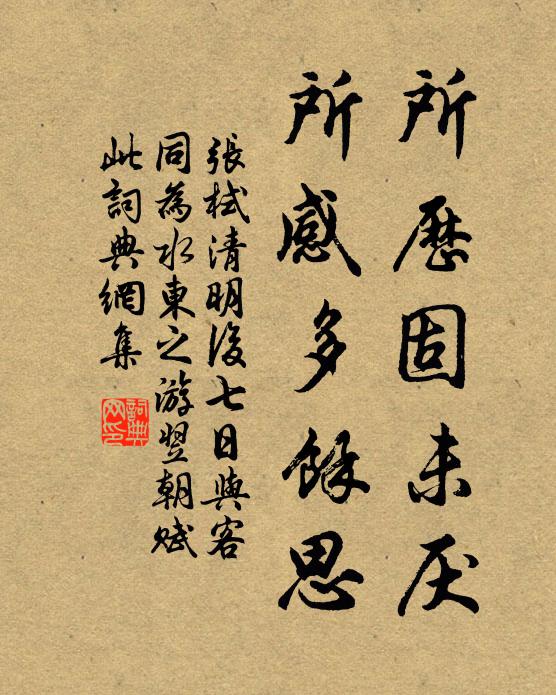 所歷固未厌
所感多餘思
張栻清明後七日與客
同為水東之游翌朝赋
此詞典網集
詞典
网印